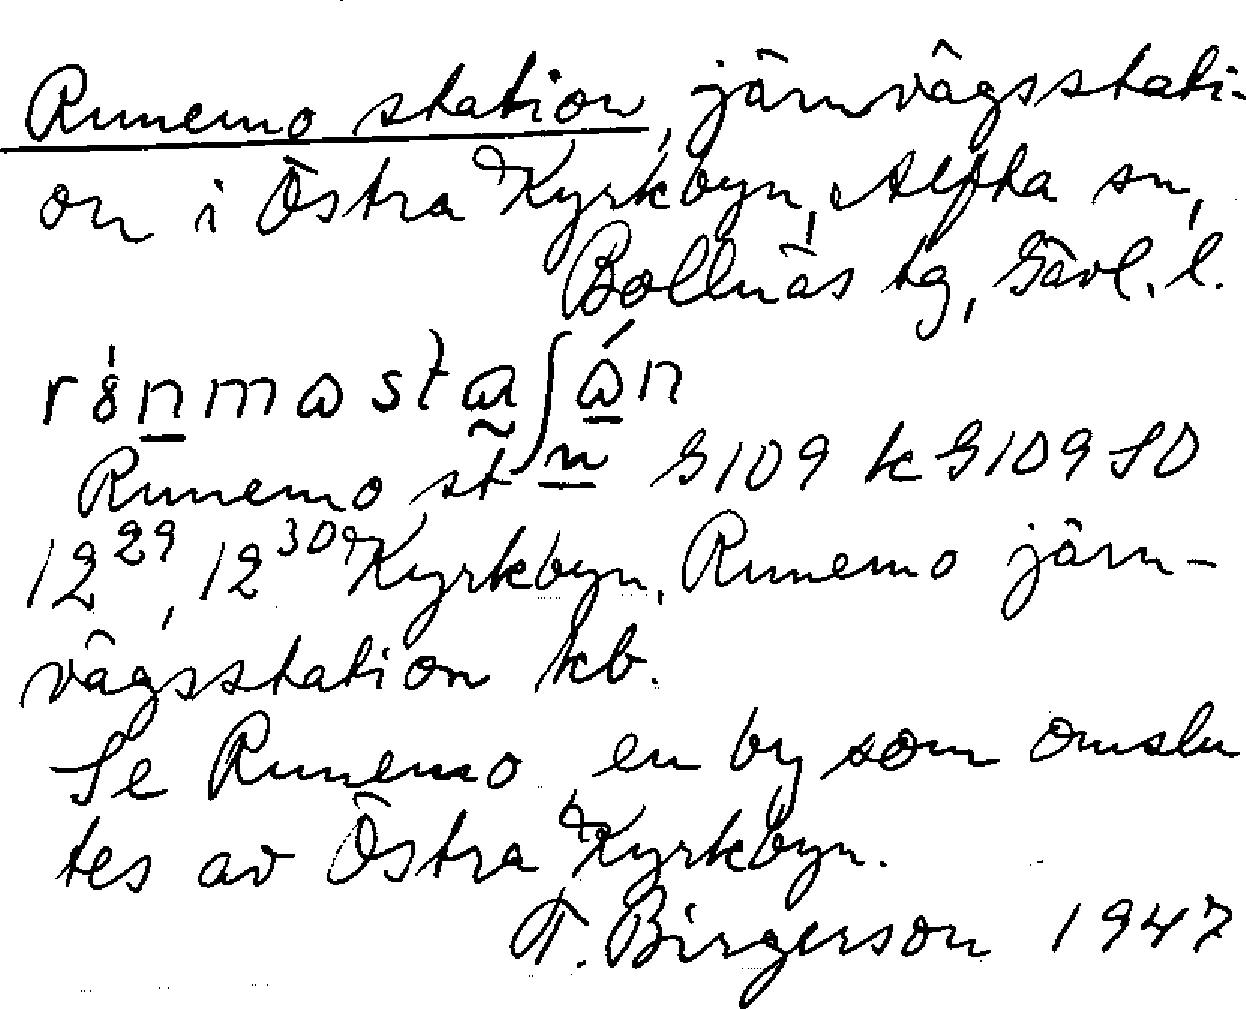 Runemo station, järnvägsstati-
on i Östra Kyrkbyn, Alfta sn,
Bollnäs tg, Gävl. l.
Runemo st n G109 k G109 SO
12 29, 12 30 Kyrkbyn, Runemo järn-
vägsstation kb.
Se Runemo en by som omslu
tes av Östra Kyrkbyn.
F. Birgerson 1947